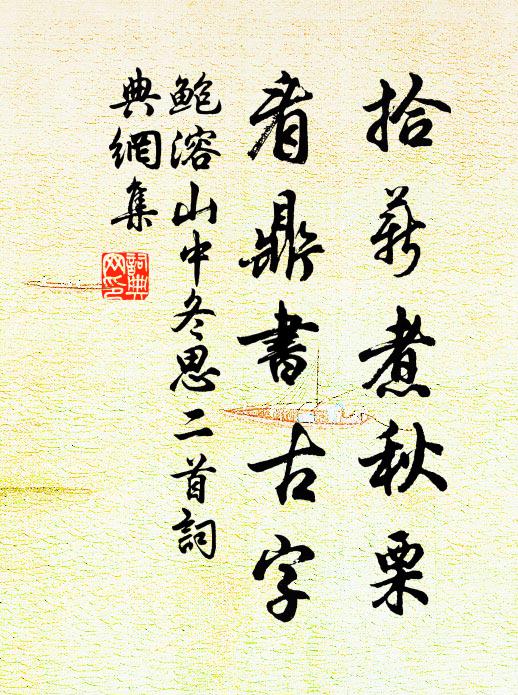 拾薪煮秋栗
看鼎書古字
鲍溶山中冬思二首詞
典網集
詞典
网印